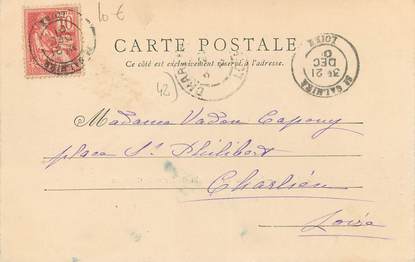 10 €
CARTE POSTALE
Ce côté est exclusivement réservé à l'adresse.
ST GALMIER
LOIRE
3E 21
DEC
(42)
Madame Vadon Capony
place St Philibert
Charlieu
Loire